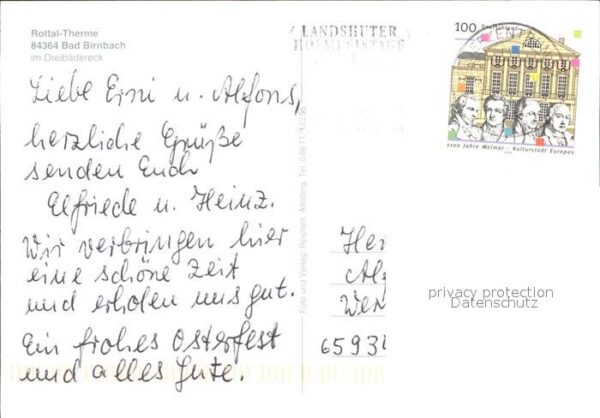 Rottal-Therme
84364 Bad Birnbach
im Dreibädereck
Liebe Erni u. Alfons,
herzliche Grüße
senden Euch
Elfriede u. Heinz.
Wir verbringen hier
eine schöne Zeit
und erholen uns gut.
Ein frohes Osterfest
und alles Gute.
Foto und Verlag
LANDSHUTER
HOFMUSIKTAGE
100 Deutschland
1100 Jahre Weimar - Kulturstadt Europas
Her
Al
Wer
6593
privacy protection
Datenschutz